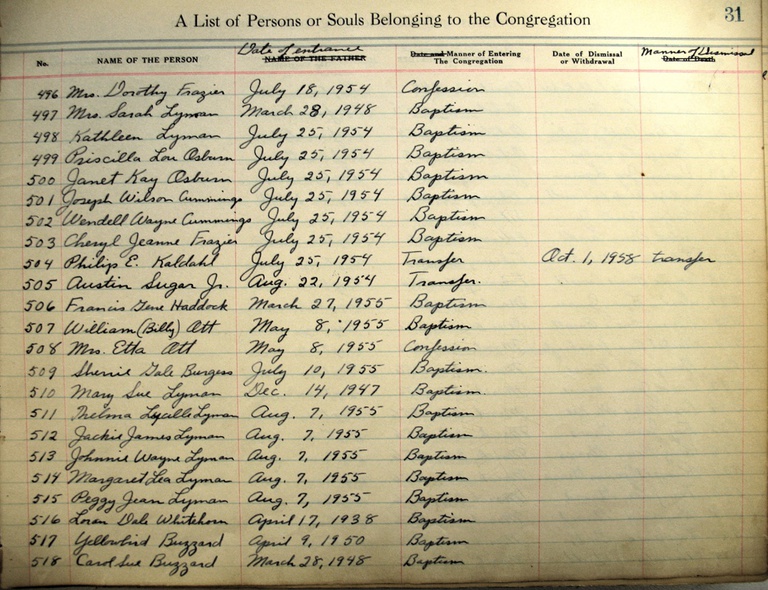 A List of Persons or Souls Belonging to the Congregation 31
No. NAME OF THE PERSON Date of entrance NAME OF THE FATHER Date and Manner of Entering The Congregation Date of Dismissal or Withdrawal Manner of Dismissal Date of Death
496 Mrs. Dorothy Frazier July 18, 1954 Confession
497 Mrs. Sarah Lyman March 28, 1948 Baptism
498 Kathleen Lyman July 25, 1954 Baptism
499 Priscilla Lou Osburn July 25, 1954 Baptism
500 Janet Kay Osburn July 25, 1954 Baptism
501 Joseph Wilson Cummings July 25, 1954 Baptism
502 Wendell Wayne Cummings July 25, 1954 Baptism
503 Cheryl Jeanne Frazier July 25, 1954 Baptism
504 Philip E. Kaldahl July 25, 1954 Transfer Oct. 1, 1958 transfer
505 Austin Sugar Jr. Aug. 22, 1954 Transfer.
506 Francis Gene Haddock March 27, 1955 Baptism
507 William (Billy) Att May 8, 1955 Baptism
508 Mrs. Etta Att May 8, 1955 Confession
509 Sherrie Gale Burgess July 10, 1955 Baptism.
510 Mary Sue Lyman Dec. 14, 1947 Baptism.
511 Thelma Lucille Lyman Aug. 7, 1955 Baptism
512 Jackie James Lyman Aug. 7, 1955 Baptism
513 Johnnie Wayne Lyman Aug. 7, 1955 Baptism
514 Margaret Lea Lyman Aug. 7, 1955 Baptism
515 Peggy Jean Lyman Aug. 7, 1955 Baptism
516 Loran Dale Whitehorn April 17, 1938 Baptism
517 Yellowbird Buzzard April 9, 1950 Baptism
518 Carol Sue Buzzard March 28, 1948 Baptism